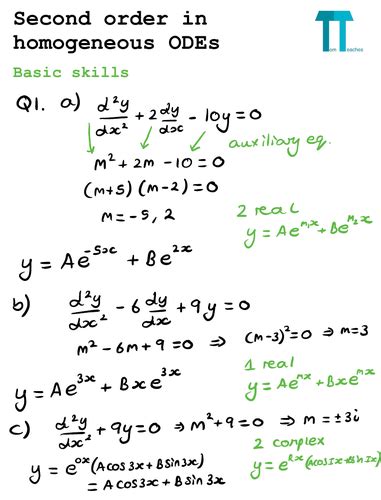 Second order in
homogeneous ODEs
TT
Tom Teaches
Basic skills
Q1. a) d²y/dx² + 2dy/dx - 10y = 0
auxiliary eq.
m² + 2m - 10 = 0
(m+5)(m-2) = 0
m = -5, 2
2 real
y = Ae^(m₁x) + Be^(m₂x)
y = Ae^(-5x) + Be^(2x)
b) d²y/dx² - 6dy/dx + 9y = 0
m² - 6m + 9 = 0 ⇒ (m-3)² = 0 ⇒ m = 3
1 real
y = Ae^(mx) + Bxe^(mx)
y = Ae^(3x) + Bxe^(3x)
c) d²y/dx² + 9y = 0 ⇒ m² + 9 = 0 ⇒ m = ±3i
2 complex
y = e^(Rx)(A cos Ix + B sin Ix)
y = e^(0x)(A cos 3x + B sin 3x)
= A cos 3x + B sin 3x